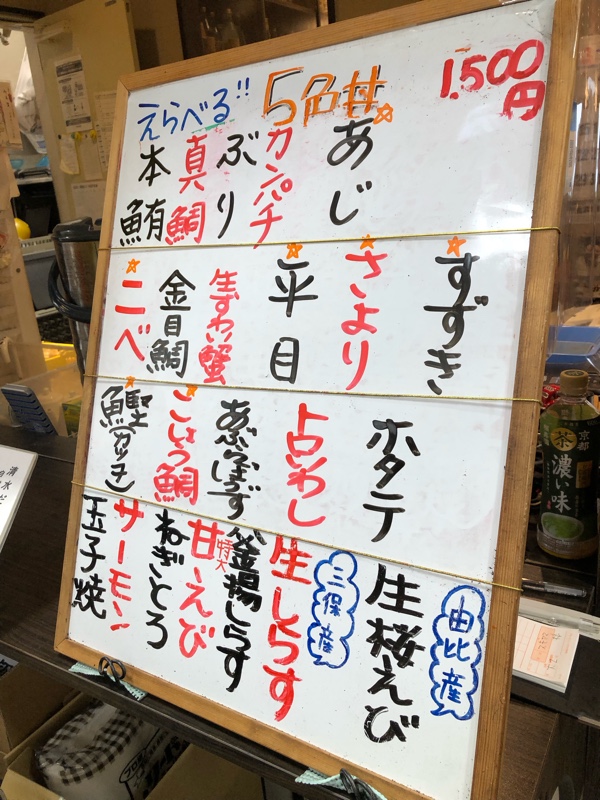 えらべる!! 5色丼
1.500円
あじ
カンパチ
ぶり
真鯛
本鮪
すずき
さより
平目
生ずわい蟹
金目鯛
ニベ
ホタテ
とろいわし
あぶらぼうず
こしょう鯛
鰹(カツオ)
由比産
生桜えび
三保産
生しらす
釜揚しらす
特大
甘えび
ねぎとろ
サーモン
玉子焼
京都
茶
濃い味
清水